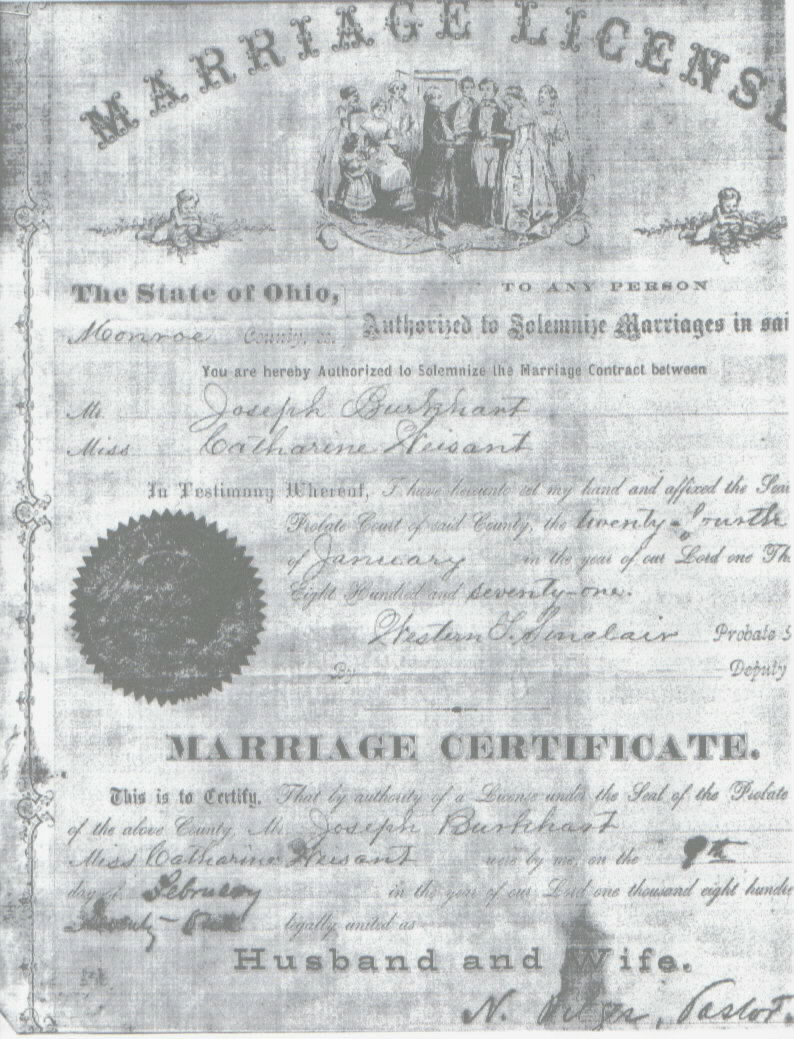 MARRIAGE LICENSE
The State of Ohio,
TO ANY PERSON
Monroe County, ss.
Authorized to Solemnize Marriages in sai
You are hereby Authorized to Solemnize the Marriage Contract between
Mr Joseph Burkhart
Miss Catharine Heisant
In Testimony Whereof, I have hereunto set my hand and affixed the Seal
Probate Court of said County, the twenty-fourth
of January in the year of our Lord one Th
Eight Hundred and seventy-one.
Western T. Sinclair Probate J
By Deputy
MARRIAGE CERTIFICATE.
This is to Certify, That by authority of a License under the Seal of the Probate
of the above County, Mr Joseph Burkhart
Miss Catharine Heisant were by me, on the 9th
day of February in the year of our Lord one thousand eight hundre
Seventy-One legally united as
Husband and Wife.
N. Pastor.